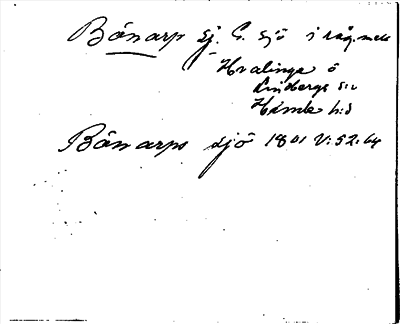 Bönarp sj. C. sjö i råg. med
Hvalinge o
Lindbergs sn
Himle hd
Bönarps sjö 1801 V: 52: 64